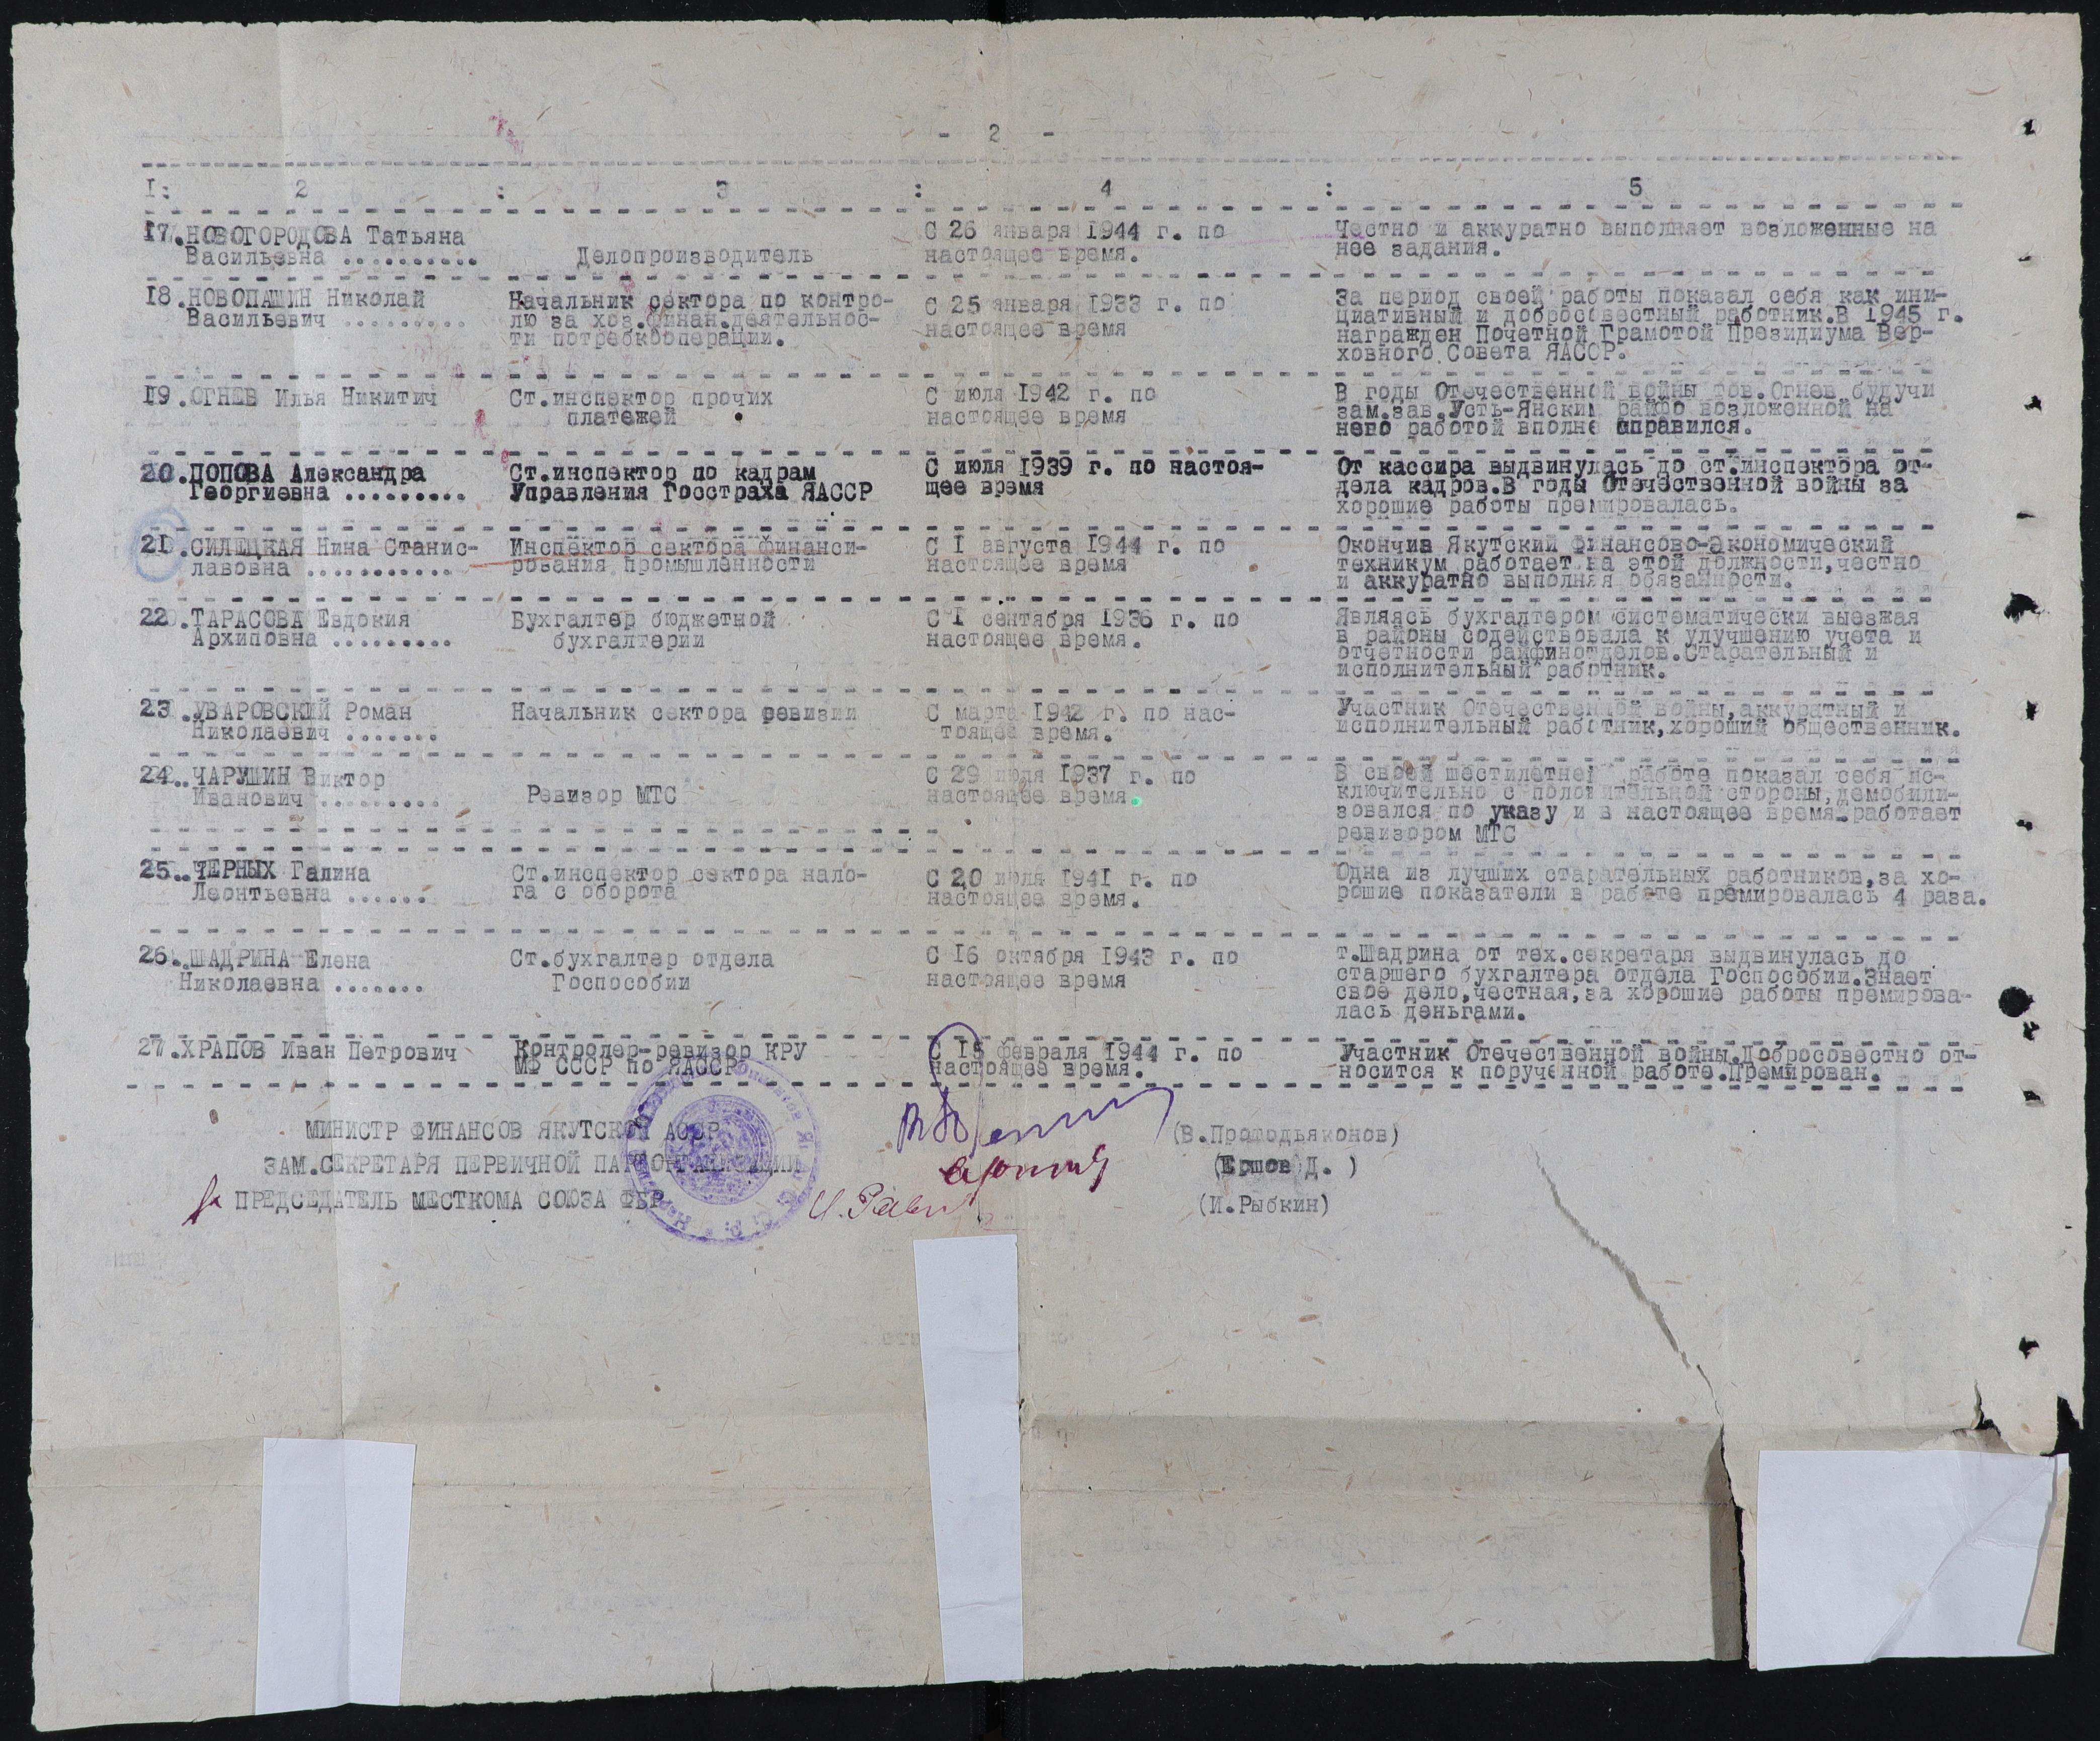 - 2 -
I: 2 : 3 : 4 : 5
17. НОВОГОРОДОВА Татьяна
Васильевна ..........
Делопроизводитель
С 26 января 1944 г. по
настоящее время.
Честно и аккуратно выполняет возложенные на
нее задания.
18. НОВОПАШИН Николай
Васильевич .........
Начальник сектора по контро-
лю за хоз.финан.деятельнос-
ти потребкооперации.
С 25 января 1933 г. по
настоящее время
За период своей работы показал себя как ини-
циативный и добросовестный работник.В 1945 г.
награжден Почетной Грамотой Президиума Вер-
ховного Совета ЯАССР.
19. ОГНЕВ Илья Никитич
Ст.инспектор прочих
платежей
С июля 1942 г. по
настоящее время
В годы Отечественной войны тов.Огнев будучи
зам.зав.Усть-Янским райфо возложенной на
него работой вполне справился.
20. ПОПОВА Александра
Георгиевна .........
Ст.инспектор по кадрам
Управления Госстраха ЯАССР
С июля 1939 г. по настоя-
щее время
От кассира выдвинулась до ст.инспектора от-
дела кадров.В годы Отечественной войны за
хорошие работы премировалась.
21. СИЛЕЦКАЯ Нина Станис-
лавовна ...........
Инспектор сектора финанси-
рования промышленности
С I августа 1944 г. по
настоящее время
Окончив Якутский финансово-экономический
техникум работает на этой должности,честно
и аккуратно выполняя обязанности.
22. ТАРАСОВА Евдокия
Архиповна .........
Бухгалтер бюджетной
бухгалтерии
С I сентября 1936 г. по
настоящее время.
Являясь бухгалтером систематически выезжая
в районы содействовала к улучшению учета и
отчетности райфинотделов.Старательный и
исполнительный работник.
23. УВАРОВСКИЙ Роман
Николаевич .......
Начальник сектора ревизии
С марта 1942 г. по нас-
тоящее время.
Участник Отечественной войны,аккуратный и
исполнительный работник,хороший общественник.
24.. ЧАРУШИН Виктор
Иванович .........
Ревизор МТС
С 29 июля 1937 г. по
настоящее время.
В своей шестилетней работе показал себя ис-
ключительно с положительной стороны,демобили-
зовался по указу и в настоящее время работает
ревизором МТС
25.. ЧЕРНЫХ Галина
Леонтьевна ......
Ст.инспектор сектора нало-
га с оборота
С 20 июля 1941 г. по
настоящее время.
Одна из лучших старательных работников,за хо-
рошие показатели в работе премировалась 4 раза.
26.. ШАДРИНА Елена
Николаевна .......
Ст.бухгалтер отдела
Госпособии
С 16 октября 1943 г. по
настоящее время
т.Шадрина от тех.секретаря выдвинулась до
старшего бухгалтера отдела Госпособии.Знает
свое дело,честная,за хорошие работы премирова-
лась деньгами.
27. ХРАПОВ Иван Петрович
Контролер-ревизор КРУ
МФ СССР по ЯАССР
С 15 февраля 1944 г. по
настоящее время.
Участник Отечественной войны.Добросовестно от-
носится к порученной работе.Премирован.
МИНИСТР ФИНАНСОВ ЯКУТСКОЙ АССР
(В.Протодьяконов)
ЗАМ.СЕКРЕТАРЯ ПЕРВИЧНОЙ ПАРТОРГАНИЗАЦИИ
(Ершов Д. )
ПРЕДСЕДАТЕЛЬ МЕСТКОМА СОЮЗА ФБР
(И.Рыбкин)